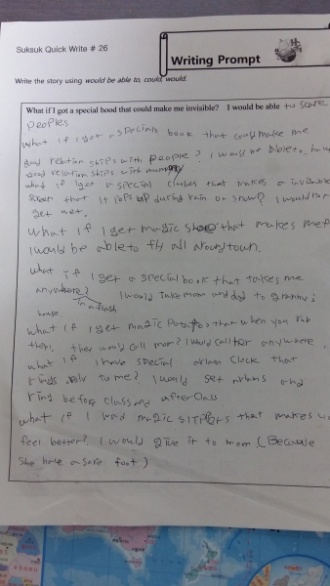 Suksuk Quick Write # 26
Writing Prompt
Write the story using would be able to, could, would.
What if I got a special hood that could make me invisible? I would be able to scare
peoples
what if I get a special book that could make me
good relation skips with people? I would be able to, have
good relation skips with mommy
what if I get a special clothes that makes a invisible
that it pops up during rain or snow? I would not
get wet.
What if I get magic shoe that makes me fly
I would be able to fly all around town.
what if I get a special book that takes me
anywhere? I would take mom and dad to grammi's
in a flash
house
what if I get magic Potatos than when you rub
them, they would call mom? I would call for anywhere.
what if I have special alarm Clock that
rings only to me? I would set alarms and
ring before class and after class
what if I had magic slippers that makes you
feel better? I would give it to mom (Because
She have a sore foot)